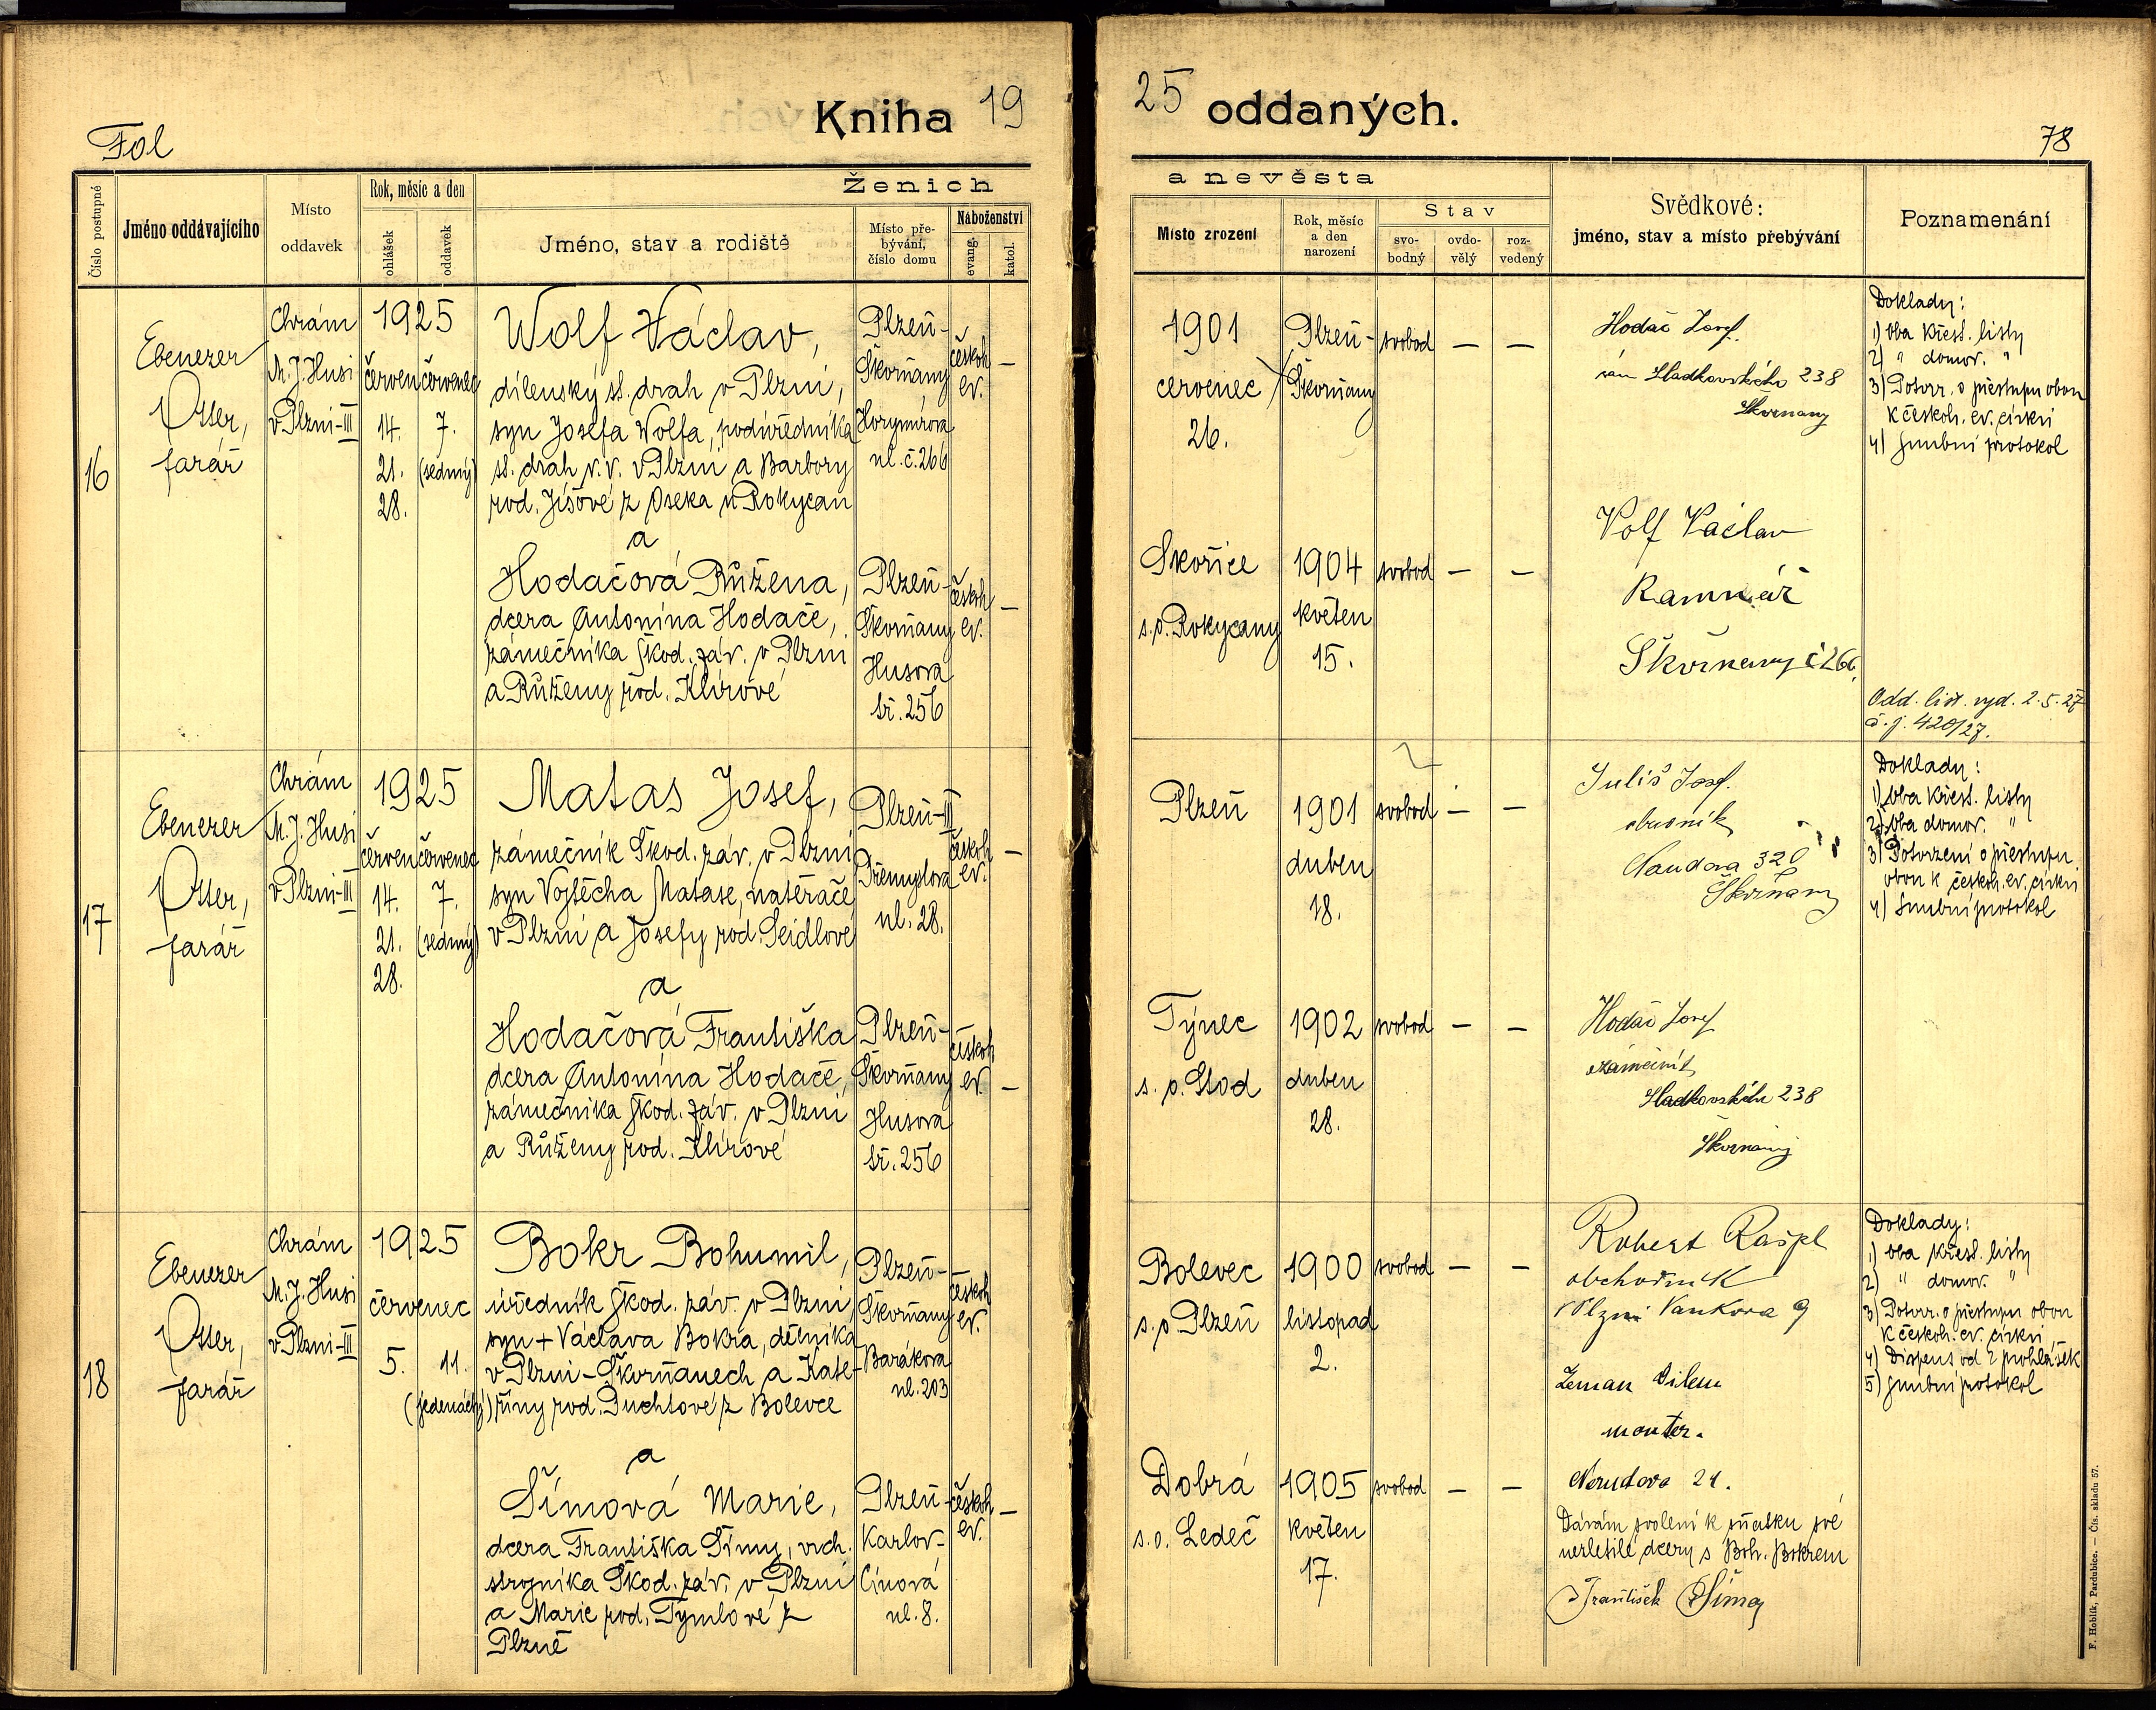 Kniha 19
25 oddaných.
Fol
78
Číslo postupné
Jméno oddávajícího
Místo
oddavek
Rok, měsíc a den
ohlášek
oddavek
Ženich
Jméno, stav a rodiště
Místo pře-
bývání,
číslo domu
Náboženství
evang.
katol.
a nevěsta
Místo zrození
Rok, měsíc
a den
narození
Stav
svo-
bodný
ovdo-
vělý
roz-
vedený
Svědkové:
jméno, stav a místo přebývání
Poznamenání
16
Ebenezer
Otter,
farář
Chrám
M. J. Husi
v Plzni-III
1925
červen červenec
14. 7.
21. (sedmý)
28.
Wolf Václav,
dílenský st. drah v Plzni,
syn Josefa Wolfa, podúředníka
st. drah v.v. v Plzni a Barbory
rod. Jíšové z Oseka u Rokycan
a
Hodačová Růžena,
dcera Antonína Hodače,
zámečníka Škod. záv. v Plzni
a Růženy rod. Klírové
Plzeň-
Škvrňany
Horymírova
ul. č. 266
českob.
ev.
—
Plzeň-
Škvrňany
Husova
tř. 256
českob.
ev.
—
1901
červenec
26.
Plzeň-
Škvrňany
svobod — —
Skořice
s.o. Rokycany
1904
květen
15.
svobod — —
Hodač Josef.
Sladkovského 238
Škvrňany
Volf Václav
Kamnář
Škvrňany č 266.
Doklady:
1) Oba křest. listy
2) " domov. "
3) Potvrz. o přestupu obou
k českob. ev. církvi
4) Snubní protokol
Odd. list. vyd. 2.5.27
č.j. 420/27.
17
Ebenezer
Otter,
farář
Chrám
M. J. Husi
v Plzni-III
1925
červen červenec
14. 7.
21. (sedmý)
28.
Matas Josef,
zámečník Škod. záv. v Plzni
syn Vojtěcha Matase, natěrače
v Plzni a Josefy rod. Seidlové
a
Hodačová Františka
dcera Antonína Hodače,
zámečníka Škod. záv. v Plzni
a Růženy rod. Klírové
Plzeň-III
Přemyslova
ul. 28.
českob.
ev.
—
Plzeň-
Škvrňany
Husova
tř. 256
českob.
ev.
—
Plzeň
1901
duben
18.
svobod — —
Týnec
s. o. Stod
1902
duben
28.
svobod — —
Juliš Josef.
obuvník
320
Škvrňany
Hodač Josef
zámečník
Sladkovského 238
Škvrňany
Doklady:
1) Oba křest. listy
2) Oba domov. "
3) Potvrzení o přestupu
obou k českob. ev. církvi
4) Snubní protokol
18
Ebenezer
Otter,
farář
Chrám
M. J. Husi
v Plzni-III
1925
červenec
5. 11.
(jedenáctý)
Bokr Bohumil,
úředník Škod. záv. v Plzni,
syn + Václava Bokra, dělníka
v Plzni-Škvrňanech a Kate-
řiny rod. Duchtové z Bolevce
a
Šímová Marie,
dcera Františka Šímy, vrch.
strojníka Škod. záv. v Plzni
a Marie rod. Tymlové z
Plzně
Plzeň-
Škvrňany
Barákova
ul. 203
českob.
ev.
Plzeň
Karlov-
Cínová
ul. 8.
českob.
ev.
—
Bolevec
s.o. Plzeň
1900
listopad
2.
svobod — —
Dobrá
s.o. Ledeč
1905
květen
17.
svobod — —
Robert Rašpl
obchodník
v Plzni Vaňkova 9
Zeman Vilém
montér.
Nerudova 24.
Dávám svolení k sňatku své
nezletilé dcery s Boh. Bokrem
František Šíma
Doklady:
1) Oba křest. listy
2) " domov. "
3) Potvrz. o přestupu obou
k českob. ev. církvi
4) Dispens od 2 prohlášek
5) Snubní protokol
F. Hoblík, Pardubice. — Čís. skladu 57.